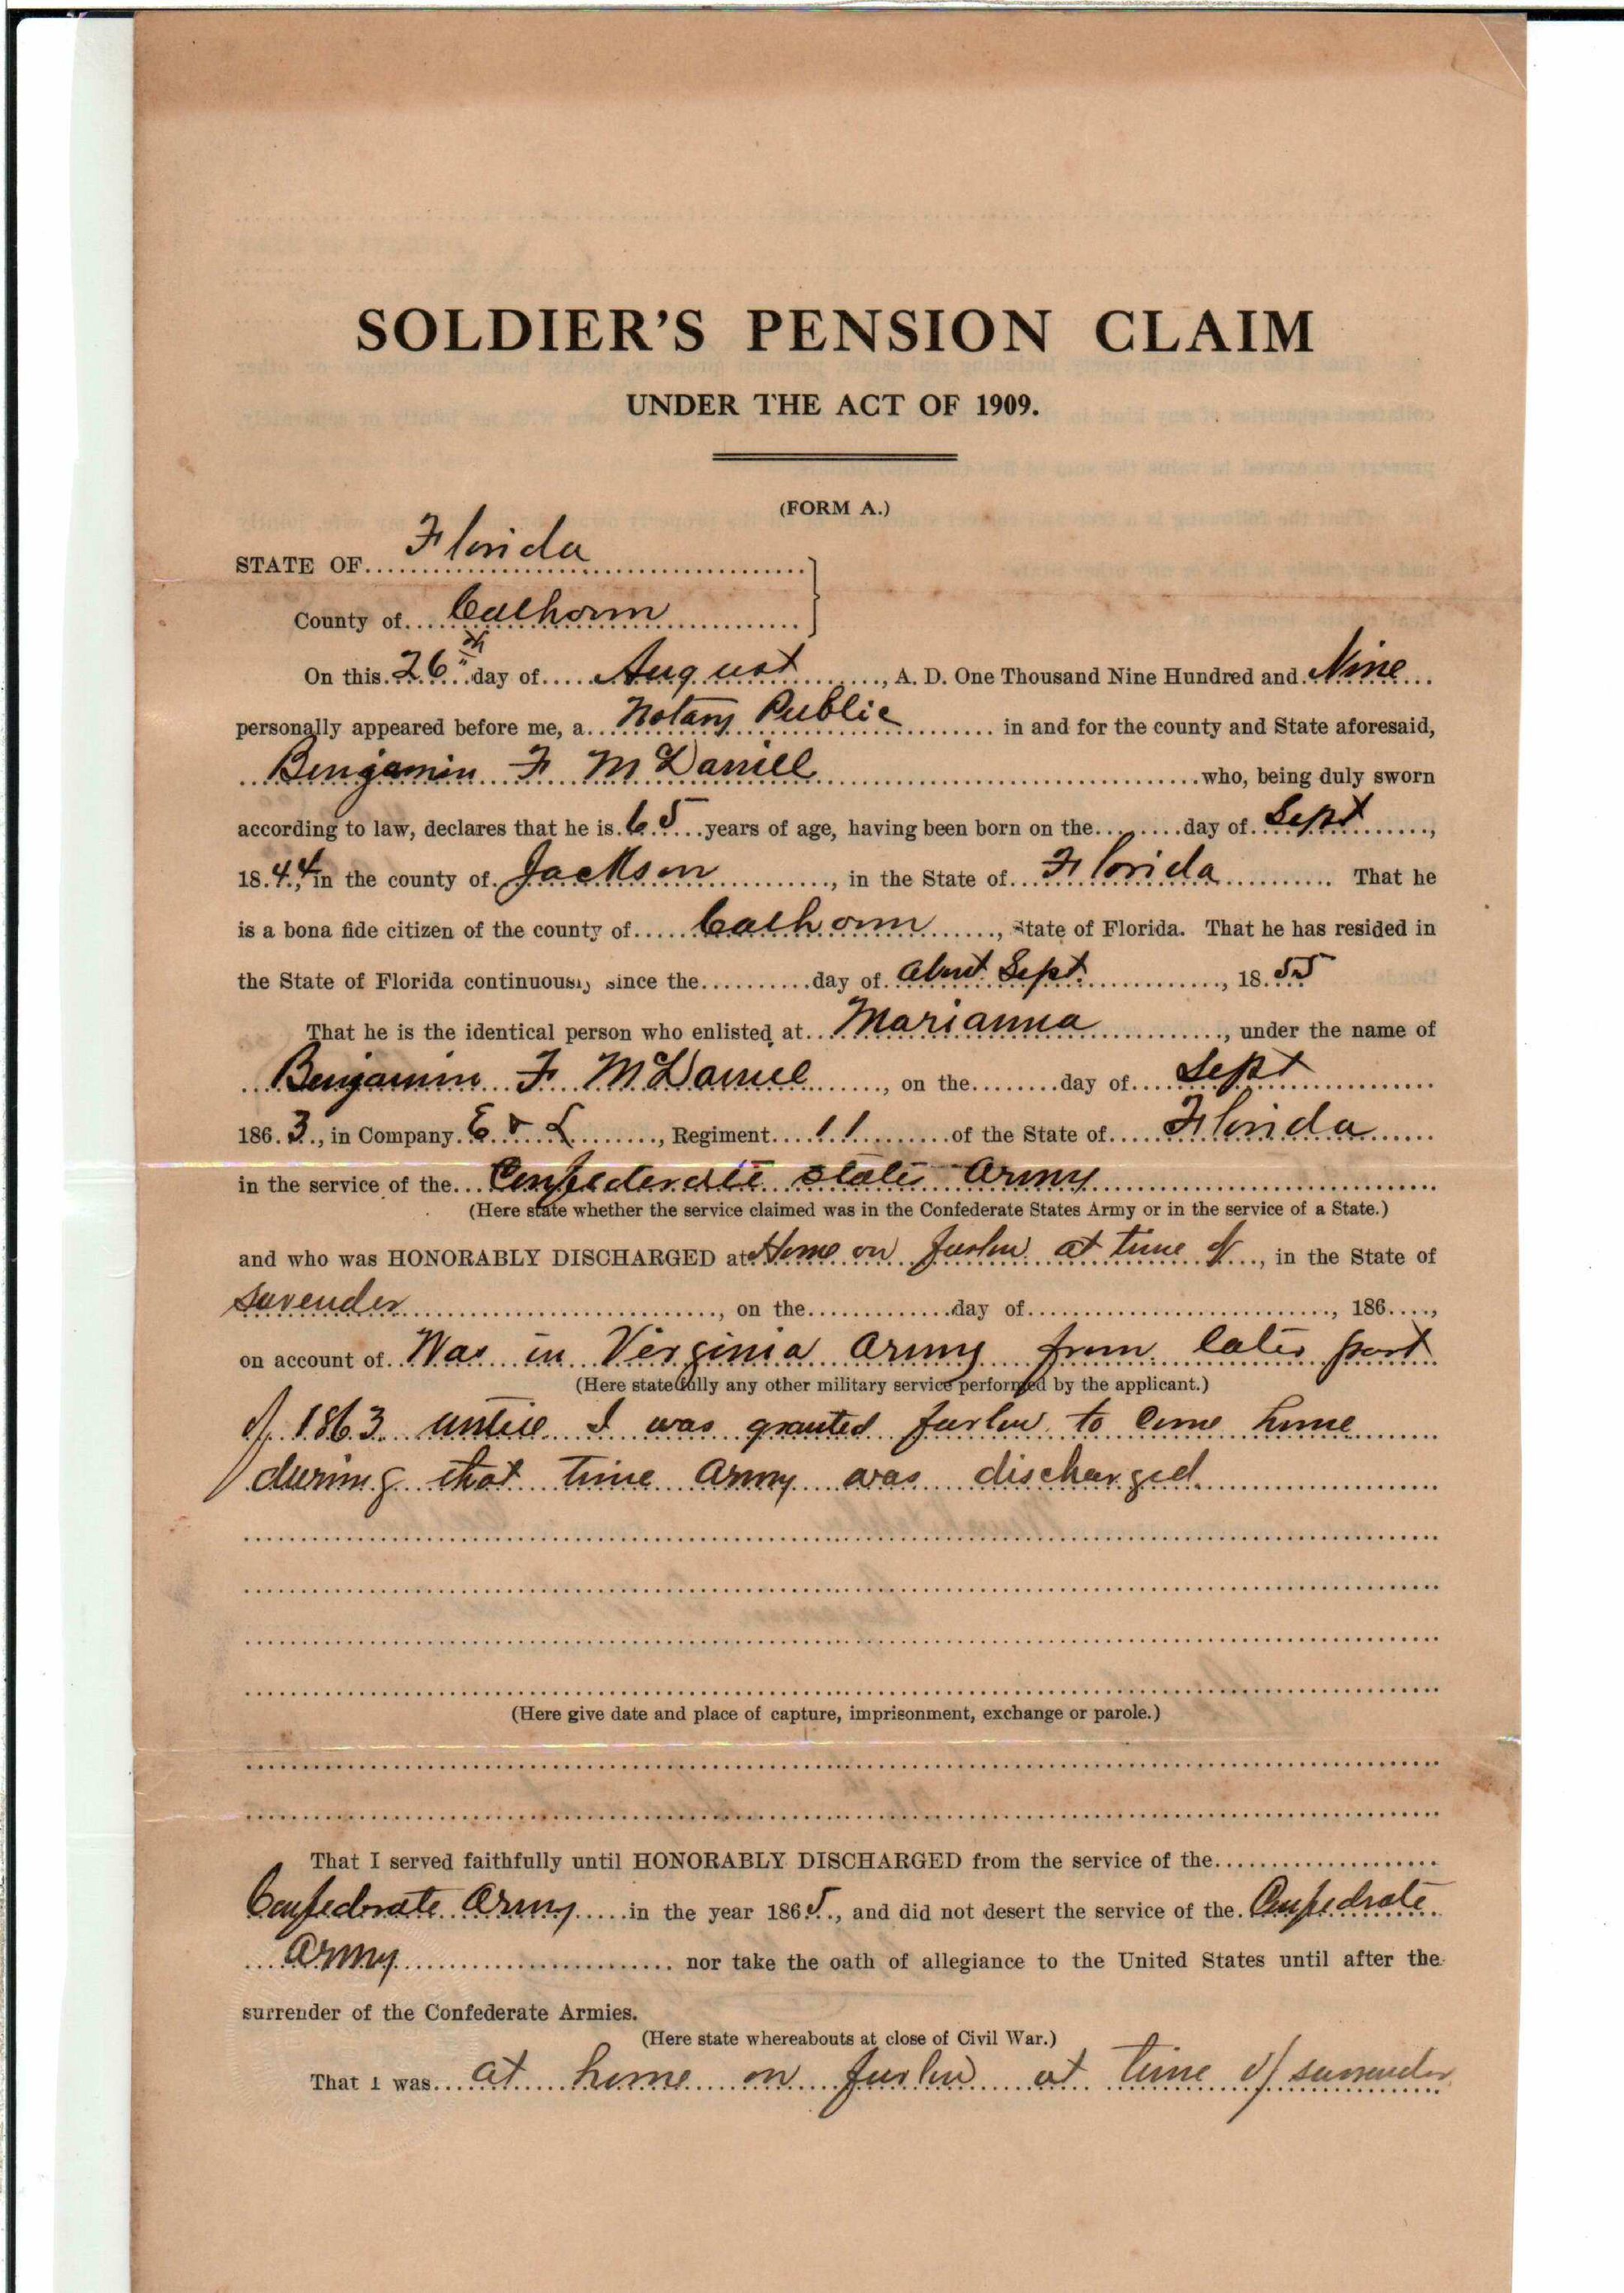 SOLDIER'S PENSION CLAIM
UNDER THE ACT OF 1909.
(FORM A.)
STATE OF Florida
County of Calhoun
On this 26th day of August, A. D. One Thousand Nine Hundred and Nine
personally appeared before me, a Notary Public in and for the county and State aforesaid,
Benjamin F McDaniel who, being duly sworn
according to law, declares that he is 65 years of age, having been born on the day of Sept,
1844, in the county of Jackson, in the State of Florida That he
is a bona fide citizen of the county of Calhoun, State of Florida. That he has resided in
the State of Florida continuously since the day of about Sept., 1855
That he is the identical person who enlisted at Marianna, under the name of
Benjamin F McDaniel, on the day of Sept
1863, in Company E & L, Regiment 11 of the State of Florida
in the service of the Confederate States Army
(Here state whether the service claimed was in the Confederate States Army or in the service of a State.)
and who was HONORABLY DISCHARGED at Home on furlow at time of, in the State of
surender, on the day of, 186,
on account of Was in Virginia Army from later part
(Here state fully any other military service performed by the applicant.)
of 1863 untill I was granted furlow to come home
during that time Army was discharged
(Here give date and place of capture, imprisonment, exchange or parole.)
That I served faithfully until HONORABLY DISCHARGED from the service of the
Confedrate Army in the year 1865, and did not desert the service of the Confedrate
Army nor take the oath of allegiance to the United States until after the
surrender of the Confederate Armies.
(Here state whereabouts at close of Civil War.)
That I was at home on furlow at time of surrender